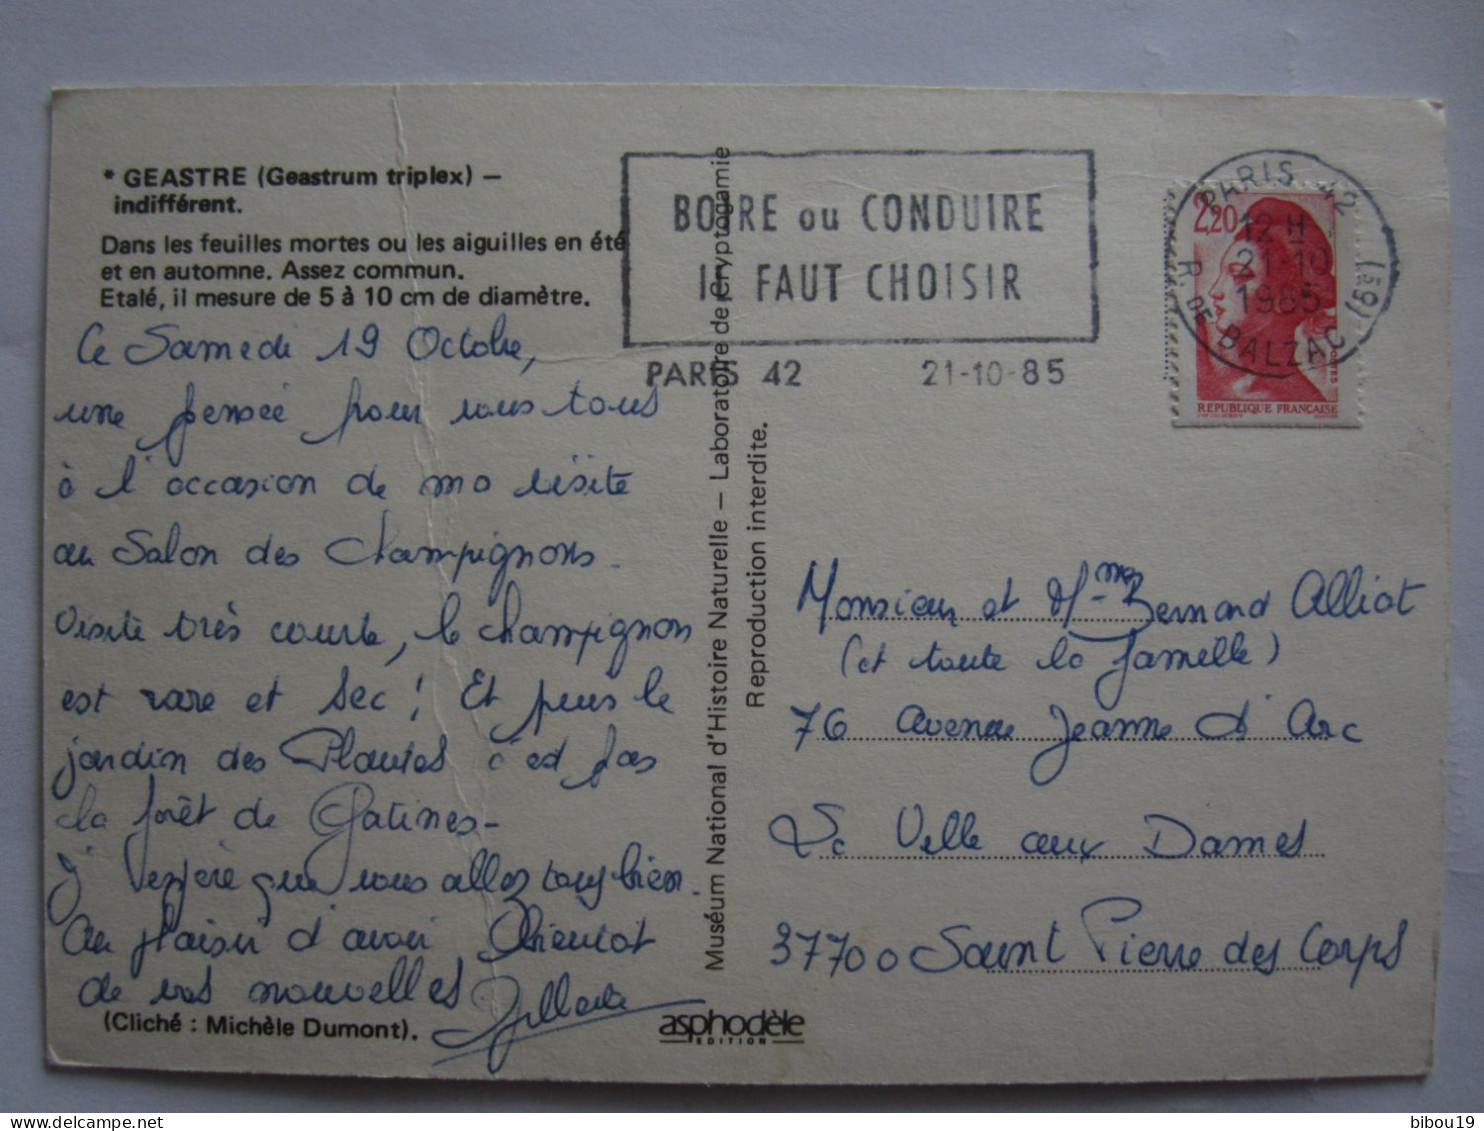 * GEASTRE (Geastrum triplex) –
indifférent.
Dans les feuilles mortes ou les aiguilles en été
et en automne. Assez commun.
Etalé, il mesure de 5 à 10 cm de diamètre.
Ce Samedi 19 Octobre,
une pensée pour vous tous
à l'occasion de ma visite
au Salon des Champignons.
Visite très courte, le champignon
est rare et sec ! Et puis le
jardin des Plantes c'est pas
la forêt de Gatines -
J'espère que vous allez tous bien.
Au plaisir d'avoir bientôt
de vos nouvelles
(Cliché : Michèle Dumont).
asphodèle
EDITION
Muséum National d'Histoire Naturelle – Laboratoire de Cryptogamie
Reproduction interdite.
BOIRE ou CONDUIRE
IL FAUT CHOISIR
PARIS 42 21-10-85
PARIS 42 (8e)
12 H
21-10
1985
R. DE BALZAC
2,20
REPUBLIQUE FRANÇAISE
Monsieur et Mme Bernard Alliot
(et toute la famille)
76 Avenue Jeanne d'Arc
La Ville aux Dames
37700 Saint Pierre des Corps
bibou19